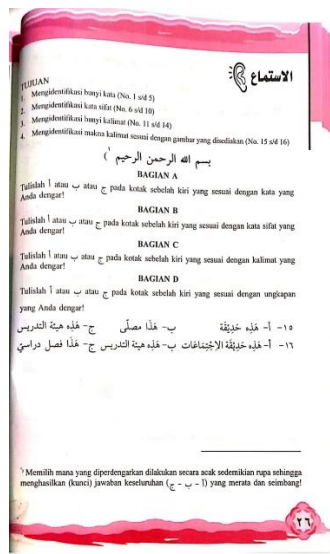 الاستماع
TUJUAN
1. Mengidentifikasi bunyi kata (No. 1 s/d 5)
2. Mengidentifikasi kata sifat (No. 6 s/d 10)
3. Mengidentifikasi bunyi kalimat (No. 11 s/d 14)
4. Mengidentifikasi makna kalimat sesuai dengan gambar yang disediakan (No. 15 s/d 16)
بسم الله الرحمن الرحيم ¹)
BAGIAN A
Tulislah أ atau ب atau ج pada kotak sebelah kiri yang sesuai dengan kata yang
Anda dengar!
BAGIAN B
Tulislah أ atau ب atau ج pada kotak sebelah kiri yang sesuai dengan kata sifat yang
Anda dengar!
BAGIAN C
Tulislah أ atau ب atau ج pada kotak sebelah kiri yang sesuai dengan kalimat yang
Anda dengar!
BAGIAN D
Tulislah أ atau ب atau ج pada kotak sebelah kiri yang sesuai dengan ungkapan
yang Anda dengar!
١٥- أ- هَذِه حَدِيْقَة ب- هَذَا مصلّى ج- هَذِه هيئة التدريس
١٦- أ- هَذِه حَدِيْقَة الاِجْتِمَاعَات ب- هَذِه هيئة التدريس ج- هَذَا فصل دراسيّ
¹ Memilih mana yang diperdengarkan dilakukan secara acak sedemikian rupa sehingga
menghasilkan (kunci) jawaban keseluruhan (أ - ب - ج) yang merata dan seimbang!
٢٦